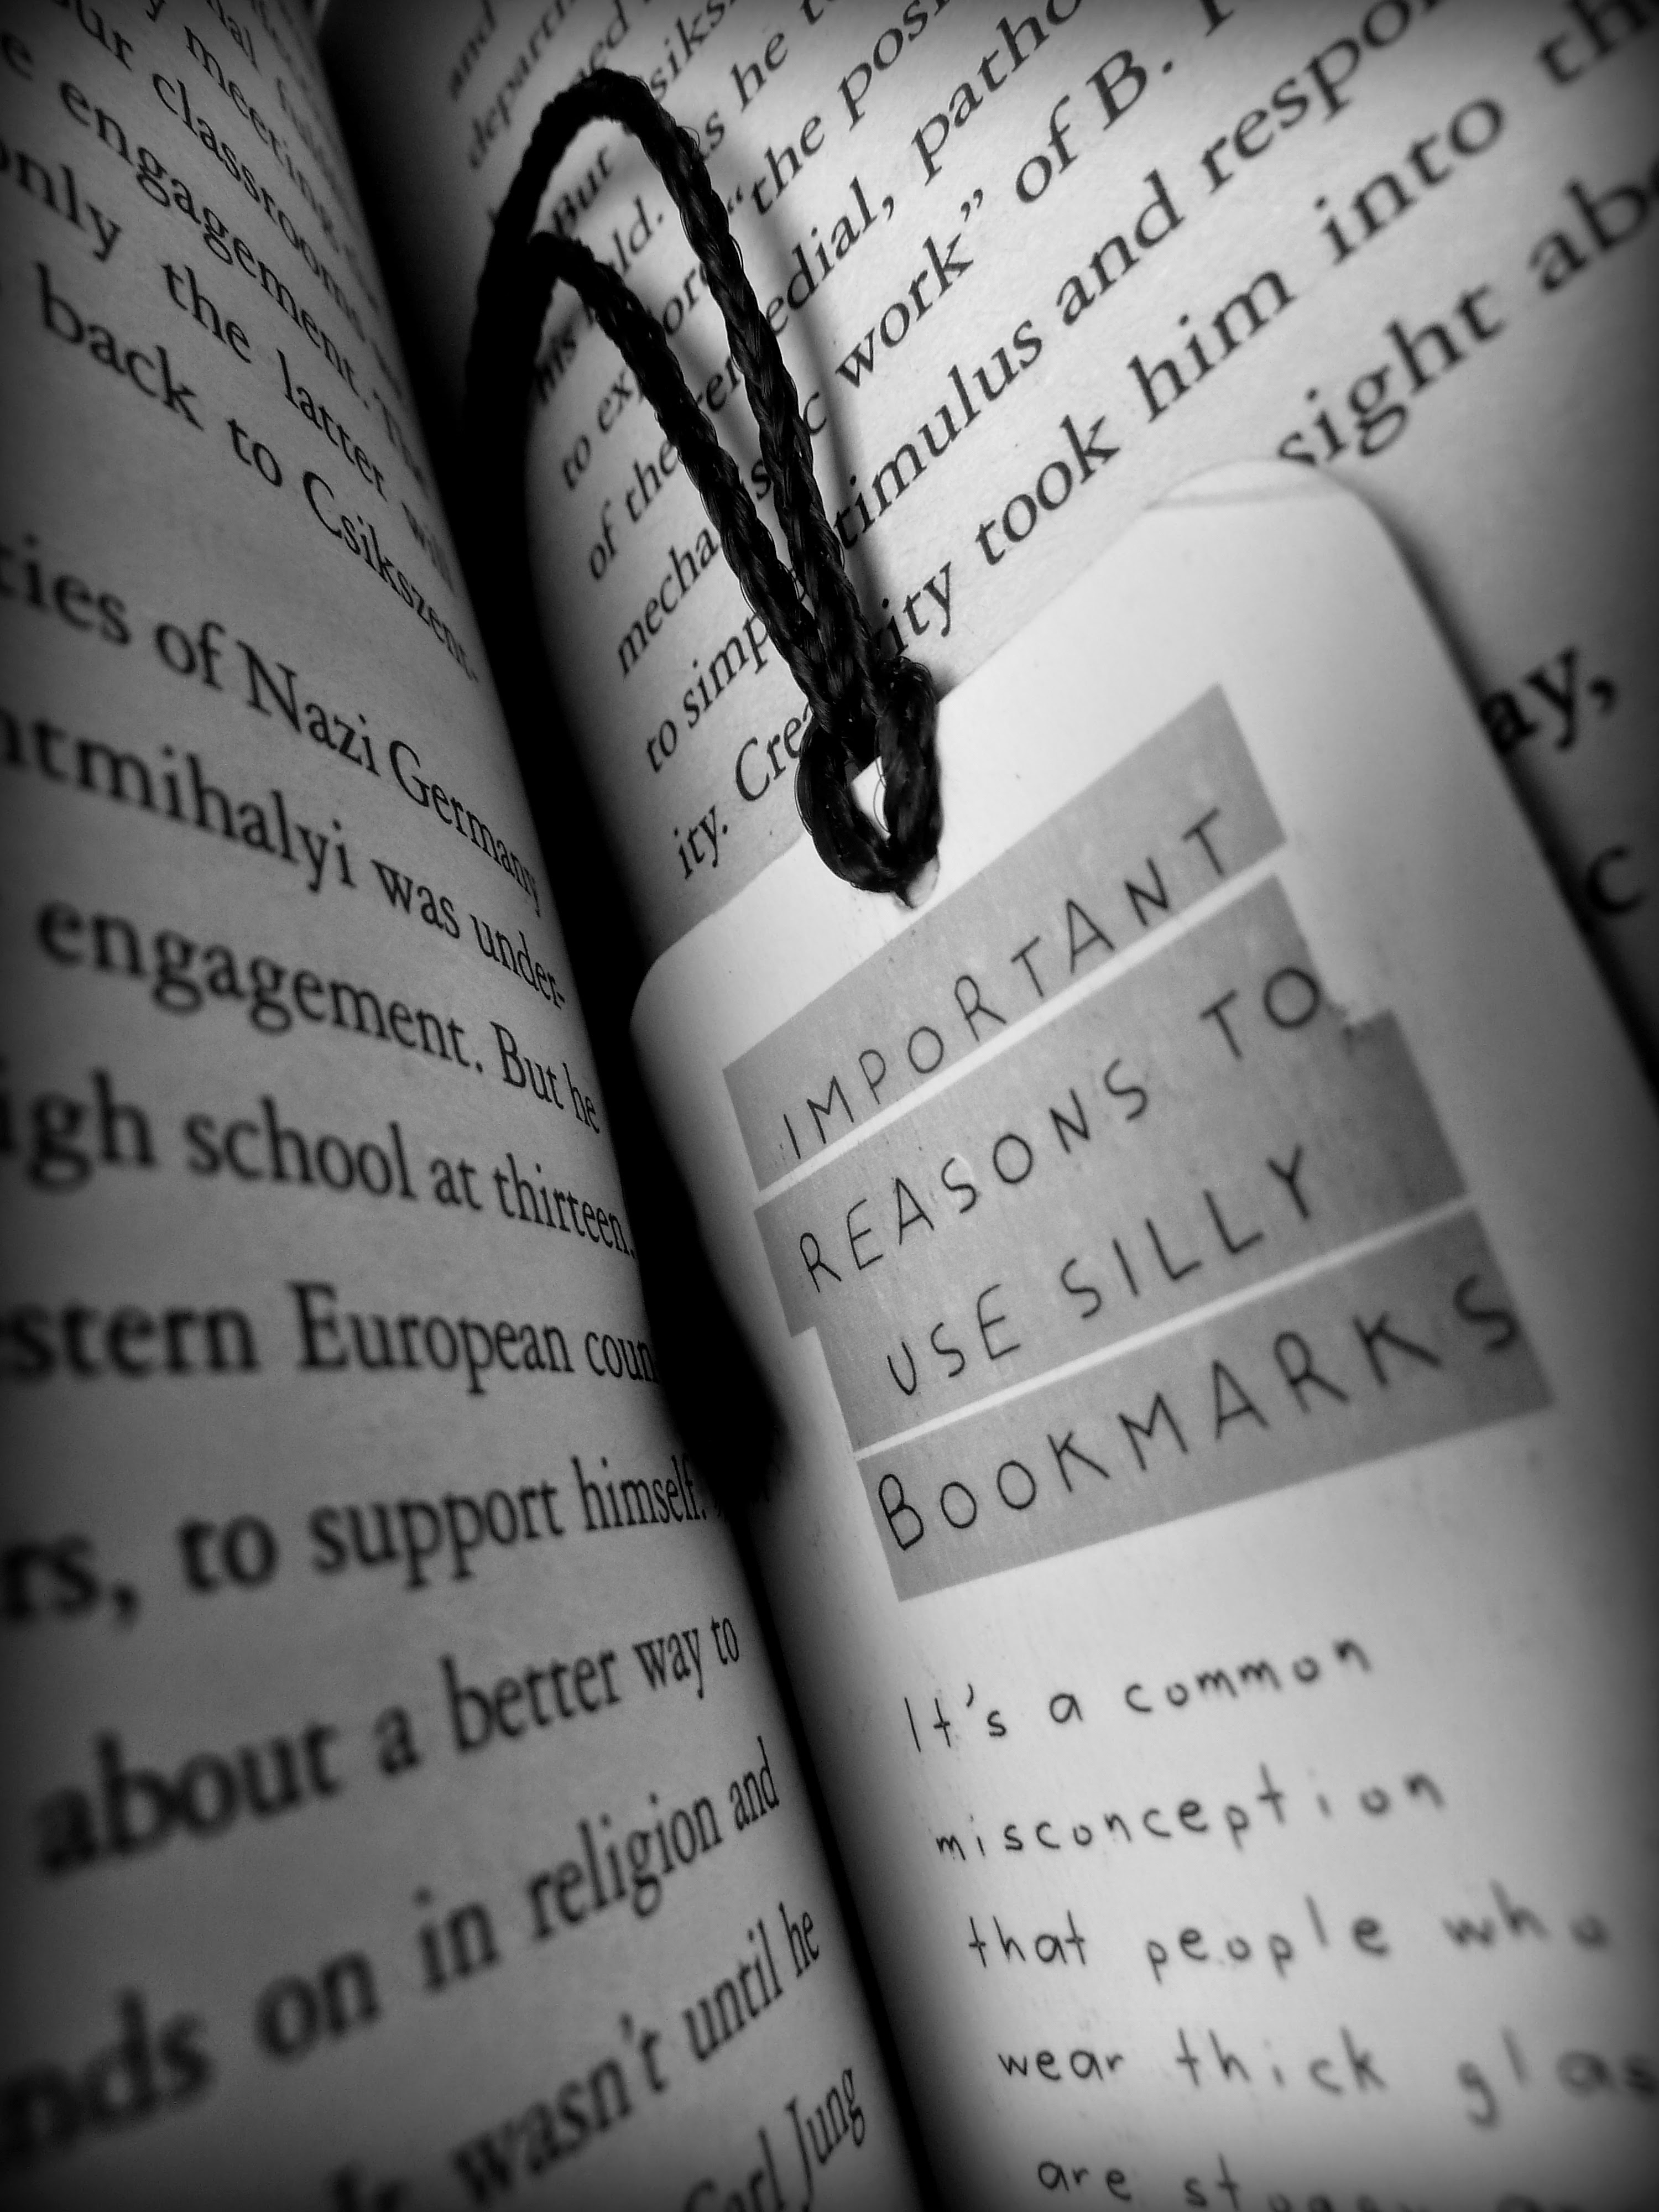 our classrooms
engagement.
only the latter will
back to Csikszent-
ties of Nazi Germany
ntmihalyi was under-
engagement. But he
igh school at thirteen.
stern European coun
rs, to support himself.
about a better way to
nds on in religion and
wasn't until he
Carl Jung
and
But
"the posi
edial, patho
work" of B.
timulus and respo
to simp
ity took him into th
ity. Crea
sight abo
ay,
c
IMPORTANT
REASONS TO
USE SILLY
BOOKMARKS
It's a common
misconception
that people who
wear thick glas
are st